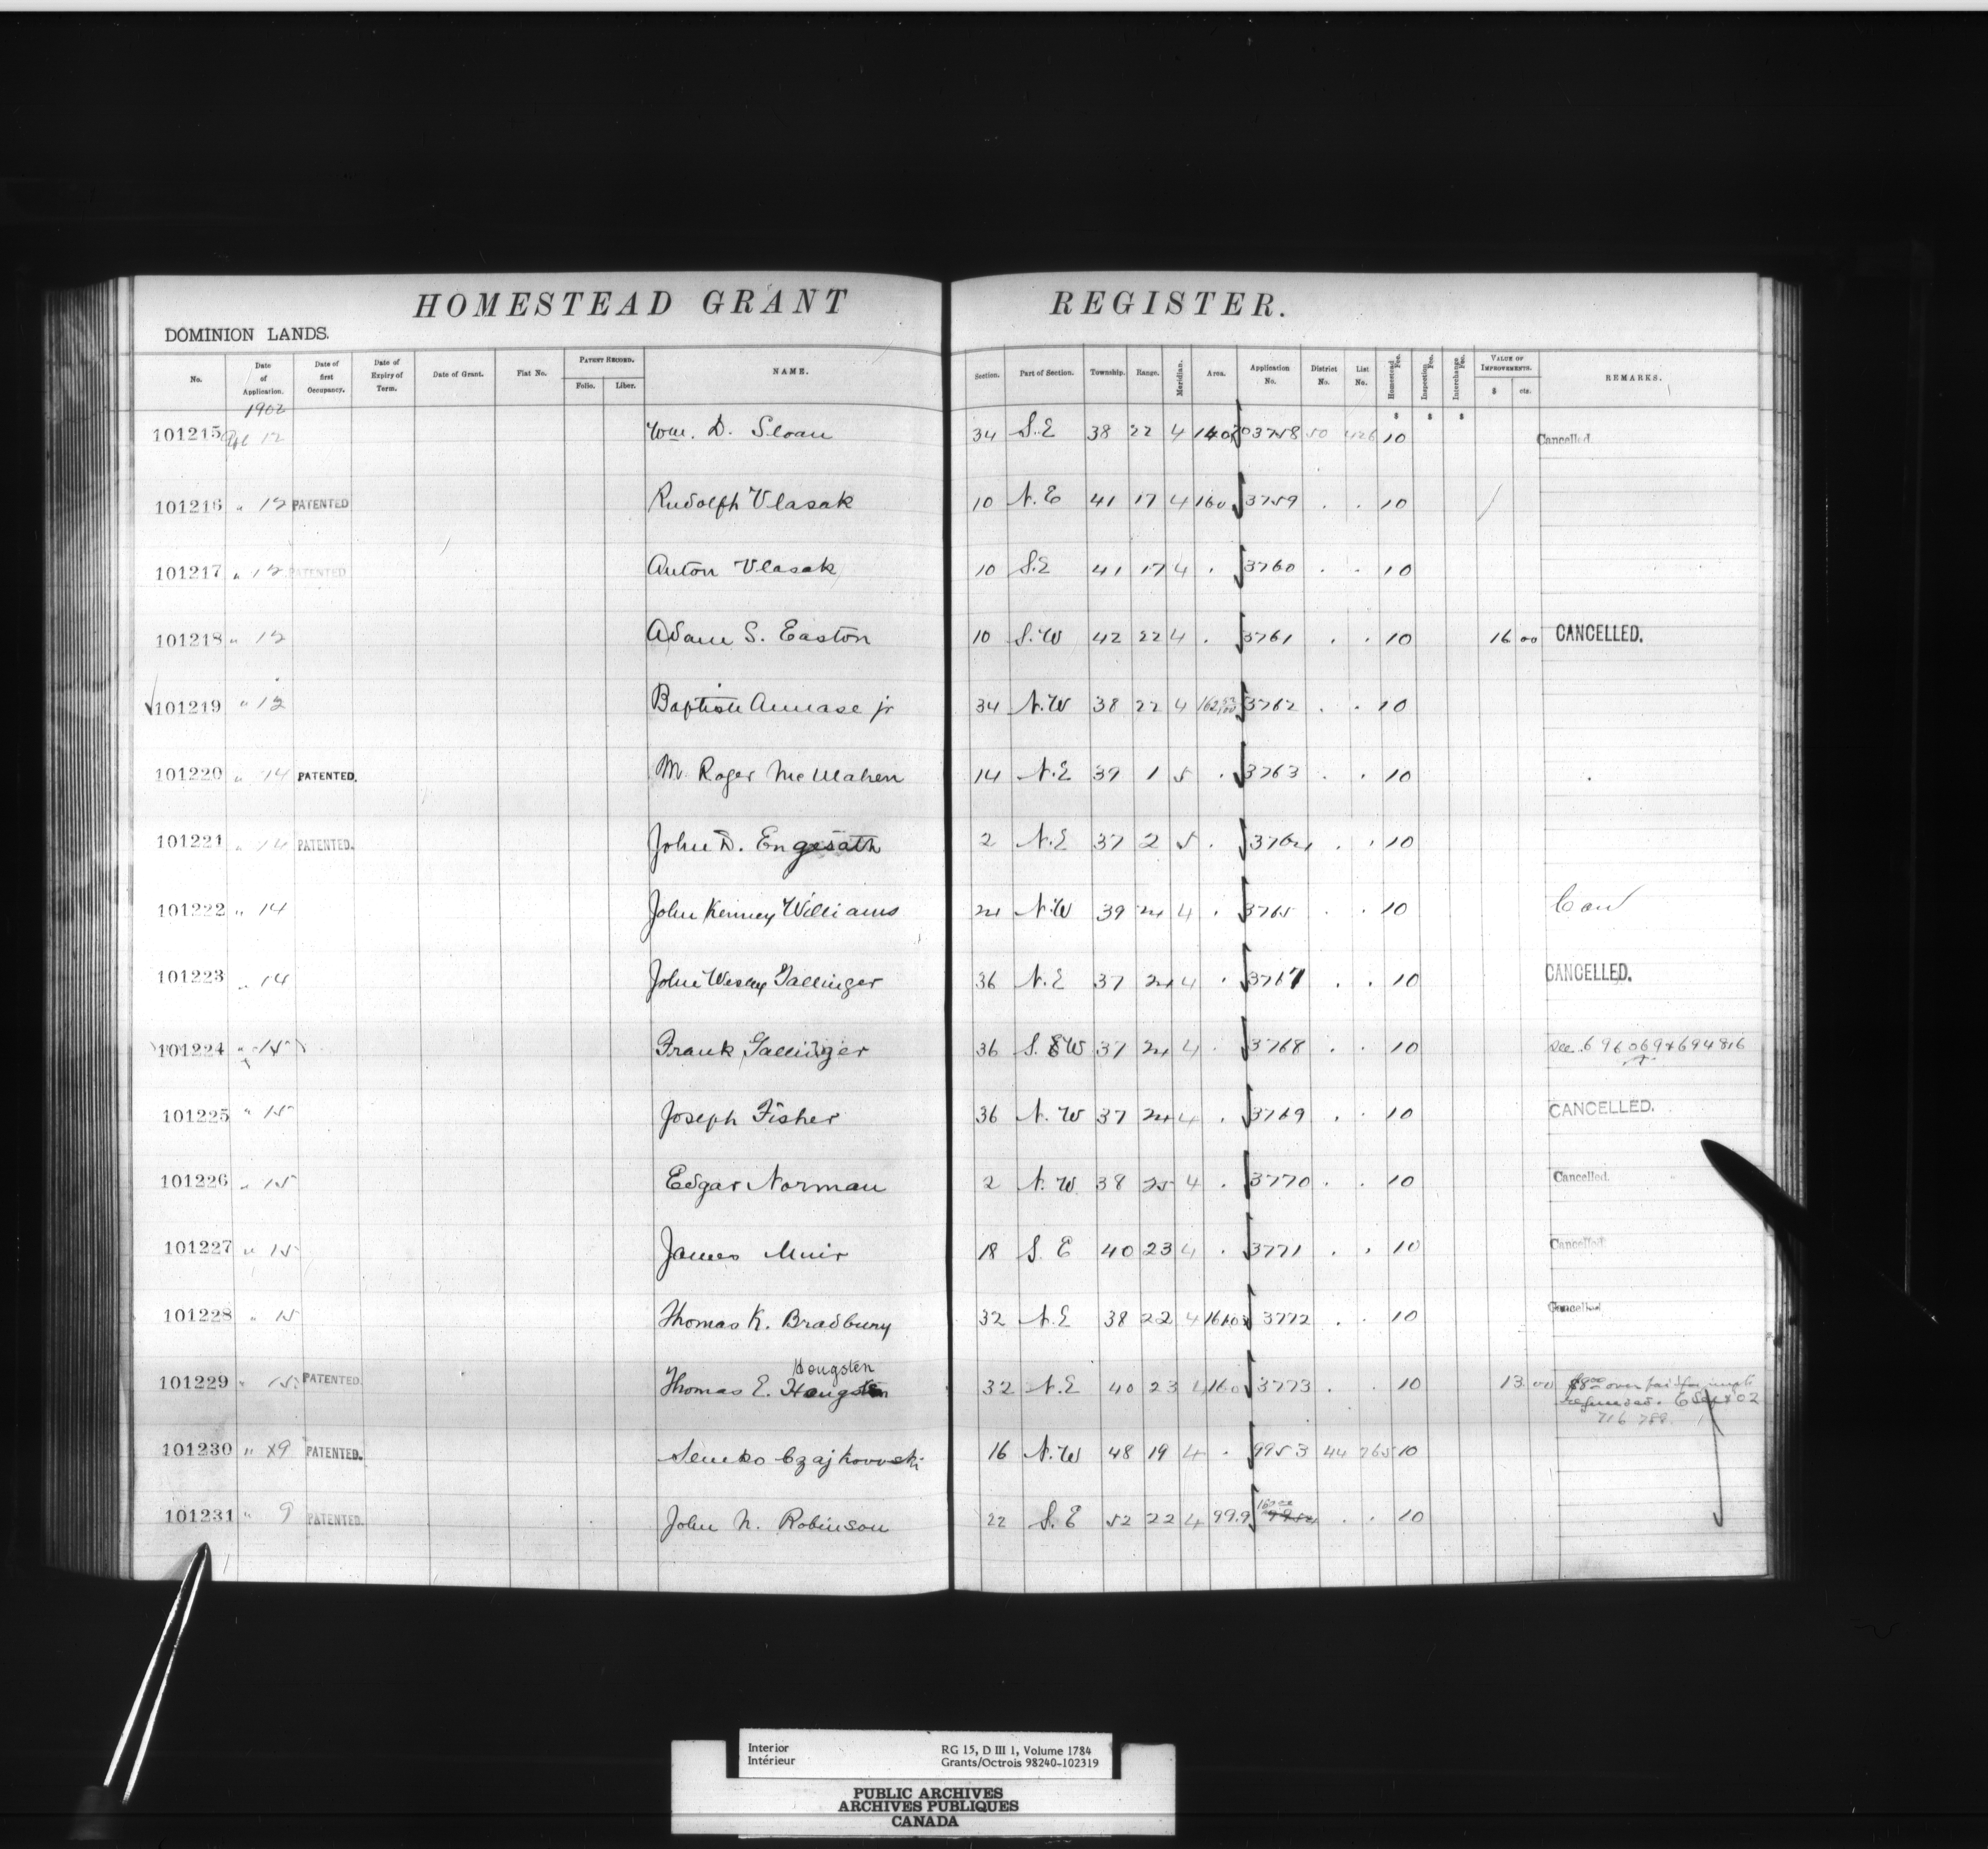 HOMESTEAD GRANT REGISTER.
DOMINION LANDS.
No. Date of Application. Date of first Occupancy. Date of Expiry of Term. Date of Grant. Fiat No. PATENT RECORD. Folio. Liber. NAME. Section. Part of Section. Township. Range. Meridian. Area. Application No. District No. List No. Homestead Fee. Inspection Fee. Interchange Fee. VALUE OF IMPROVEMENTS. $ cts. REMARKS.
1902 $ $ $
101215 Apl 12 Wm. D. Sloan 34 S.E 38 22 4 3758 50 426 10 Cancelled.
101216 " 12 PATENTED Rudolph Vlasak 10 N.E 41 17 4 160 3759 . . 10
101217 " 12 PATENTED Anton Vlasak 10 S.E 41 17 4 . 3760 . . 10
101218 " 12 Adam S. Easton 10 S.W 42 22 4 . 3761 . . 10 16 00 CANCELLED.
101219 " 12 Baptiste Annase jr 34 N.W 38 22 4 3762 . . 10
101220 " 14 PATENTED. M. Roger McMahen 14 N.E 39 1 5 . 3763 . . 10
101221 " 14 PATENTED. John D. Engesath 2 N.E 37 2 5 . 3764 . . 10
101222 " 14 John Kenney Williams 24 N.W 39 24 4 . 3765 . . 10 Can
101223 " 14 John Wesley Gallinger 36 N.E 37 24 4 . 3767 . . 10 CANCELLED.
101224 " 15 Frank Gallinger 36 S.W 37 24 4 . 3768 . . 10 See 696069 & 694816
101225 " 15 Joseph Fisher 36 N.W 37 24 4 . 3769 . . 10 CANCELLED.
101226 " 15 Edgar Norman 2 N.W 38 25 4 . 3770 . . 10 Cancelled.
101227 " 15 James Muir 18 S.E 40 23 4 . 3771 . . 10 Cancelled
101228 " 15 Thomas K. Bradbury 32 N.E 38 22 4 3772 . . 10 Cancelled
Hougsten
101229 " 15 PATENTED. Thomas E. Hougsten 32 N.E 40 23 4 160 3773 . . 10 13 00 $8.00 over paid for impts
refunded. 6 Sept 02
716 789
101230 " 29 PATENTED. Senko Czajkowski 16 N.W 48 19 4 . 9953 44 265 10
160.00
101231 " 9 PATENTED. John N. Robinson 22 S.E 52 22 4 99.9 9954 . . 10
Interior RG 15, D III 1, Volume 1784
Intérieur Grants/Octrois 98240-102319
PUBLIC ARCHIVES
ARCHIVES PUBLIQUES
CANADA